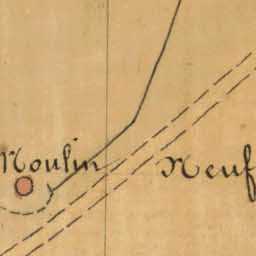 Moulin Neuf